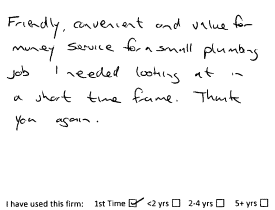 Friendly, convenient and value for
money service for a small plumbing
job I needed looking at in
a short time frame. Thank
you again.
I have used this firm: 1st Time ☑ <2 yrs ☐ 2-4 yrs ☐ 5+ yrs ☐